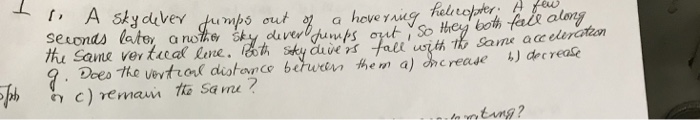 I 1, A skydiver jumps out of a hovering helicopter. A few
seconds later another sky diver jumps out, so they both fall along
the same vertical line. Both skydivers fall with the same acceleration
g. Does the vertical distance between them a) increase b) decrease
or c) remain the same?